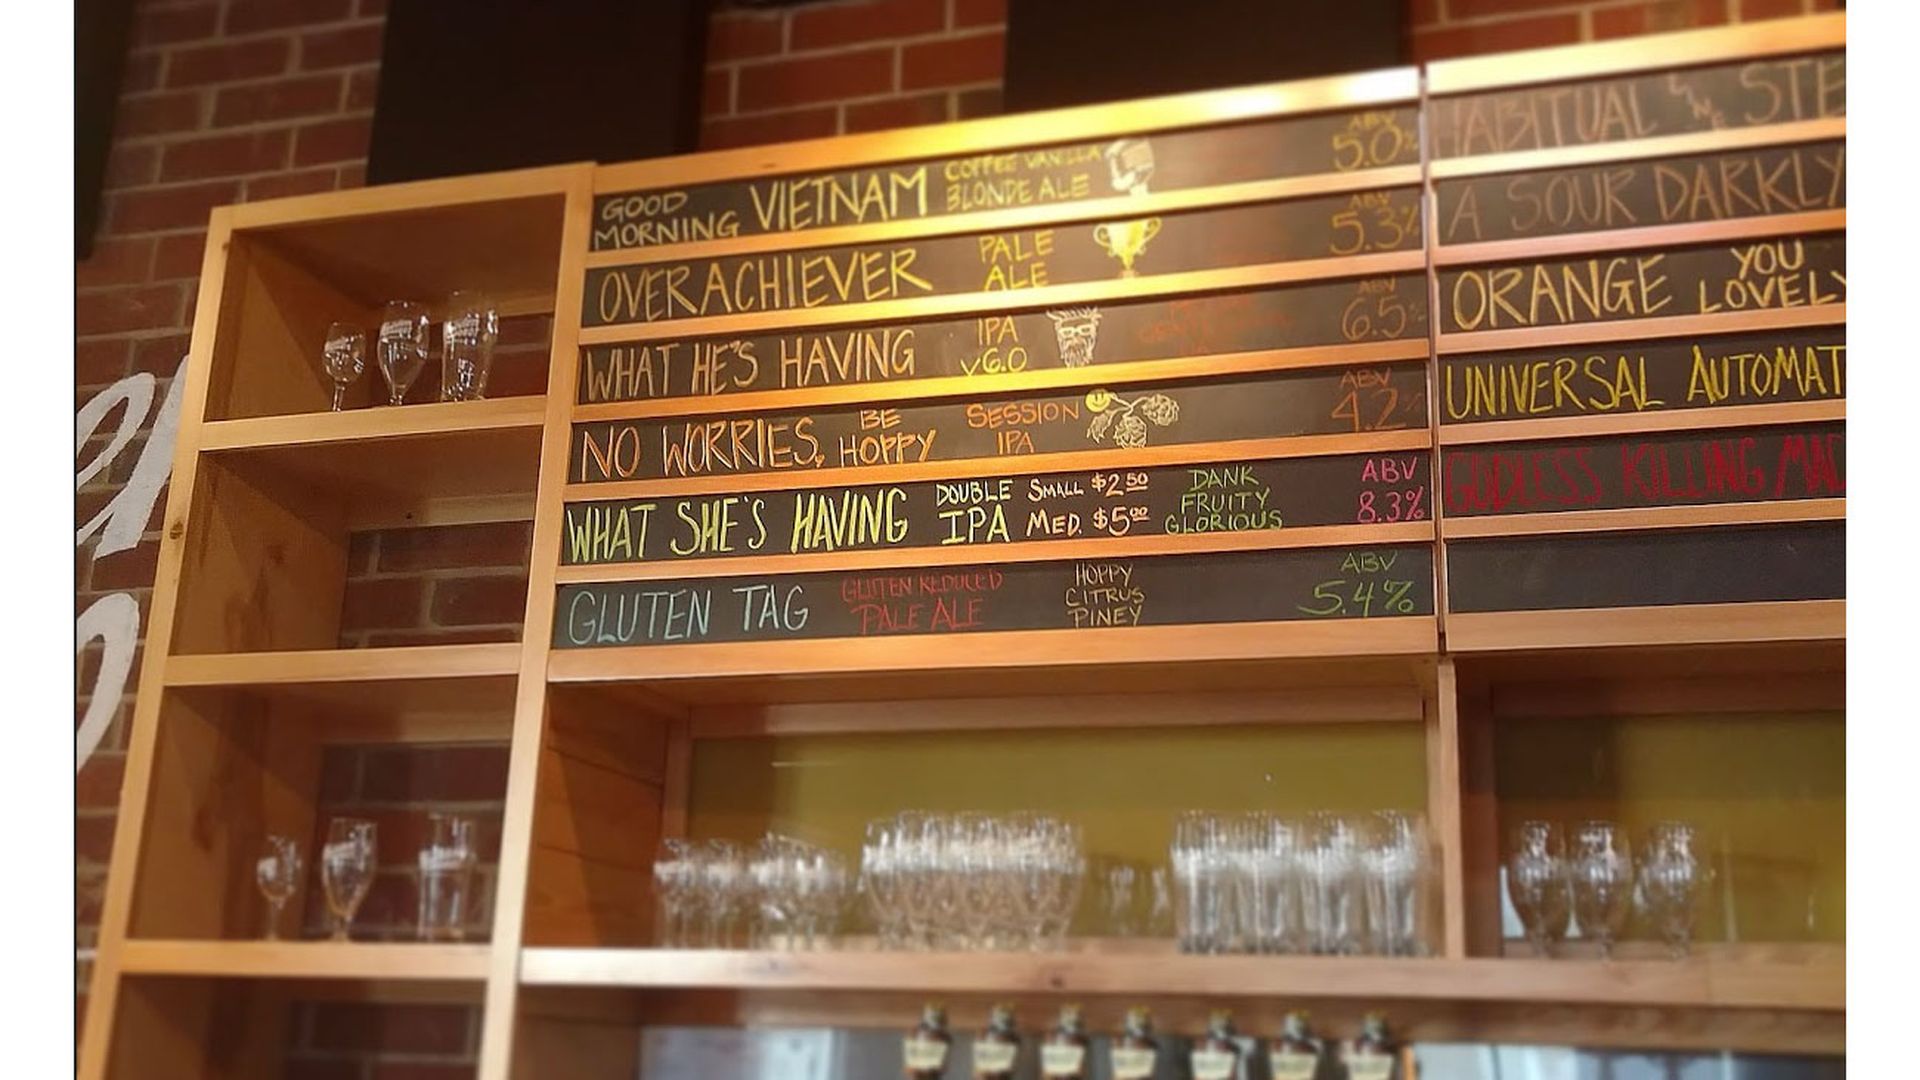 GOOD MORNING VIETNAM COFFEE VANILLA BLONDE ALE ABV 5.0%
OVERACHIEVER PALE ALE ABV 5.3%
WHAT HE'S HAVING IPA V6.0 ABV 6.5%
NO WORRIES, BE HOPPY SESSION IPA ABV 4.2%
WHAT SHE'S HAVING DOUBLE IPA SMALL $2.50 MED. $5.00 DANK FRUITY GLORIOUS ABV 8.3%
GLUTEN TAG GLUTEN REDUCED PALE ALE HOPPY CITRUS PINEY ABV 5.4%
HABITUAL LINE STE
A SOUR DARKLY
ORANGE YOU LOVELY
UNIVERSAL AUTOMAT
GODLESS KILLING MAC